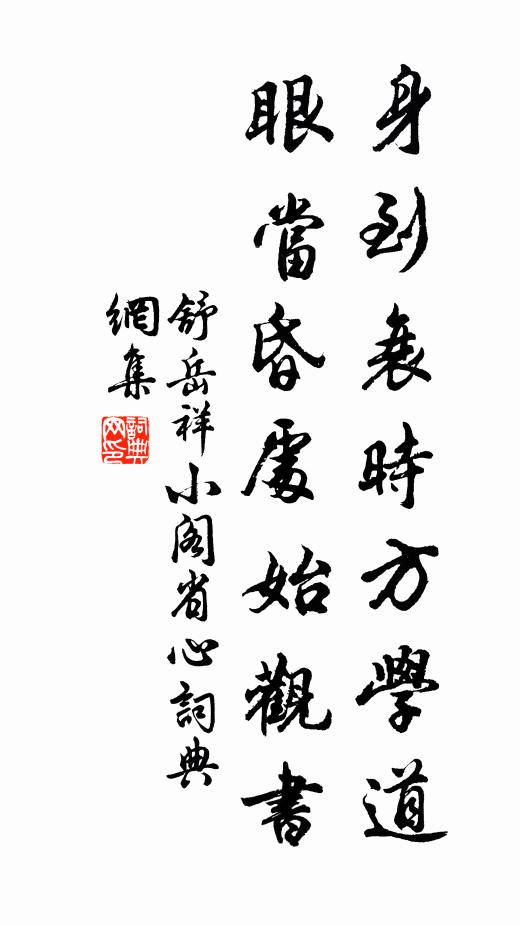 身到衰時方學道
眼當昏處始觀書
舒岳祥小閣省心詞典
網集
詞典網印